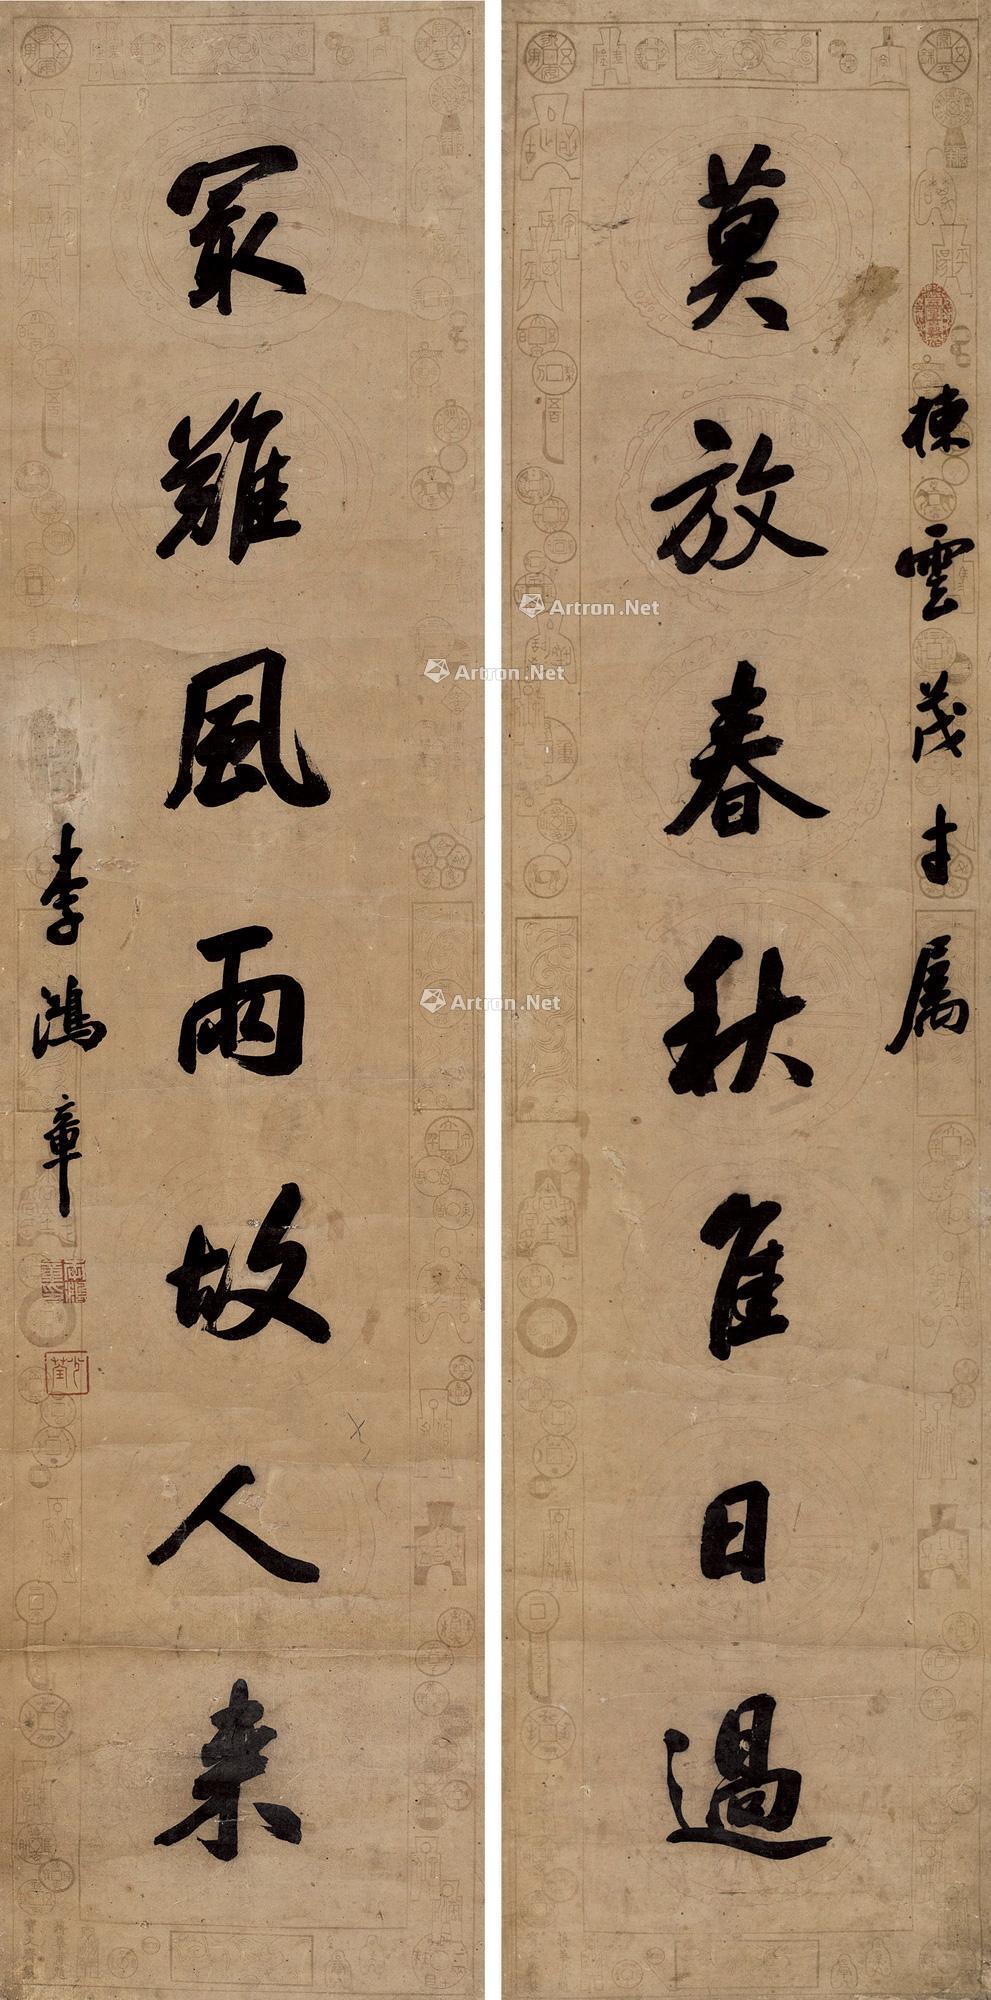 棟雲茂才屬
莫放春秋隹日過
冣難風雨故人来
李鴻章
Artron.Net
Artron.Net
Artron.Net